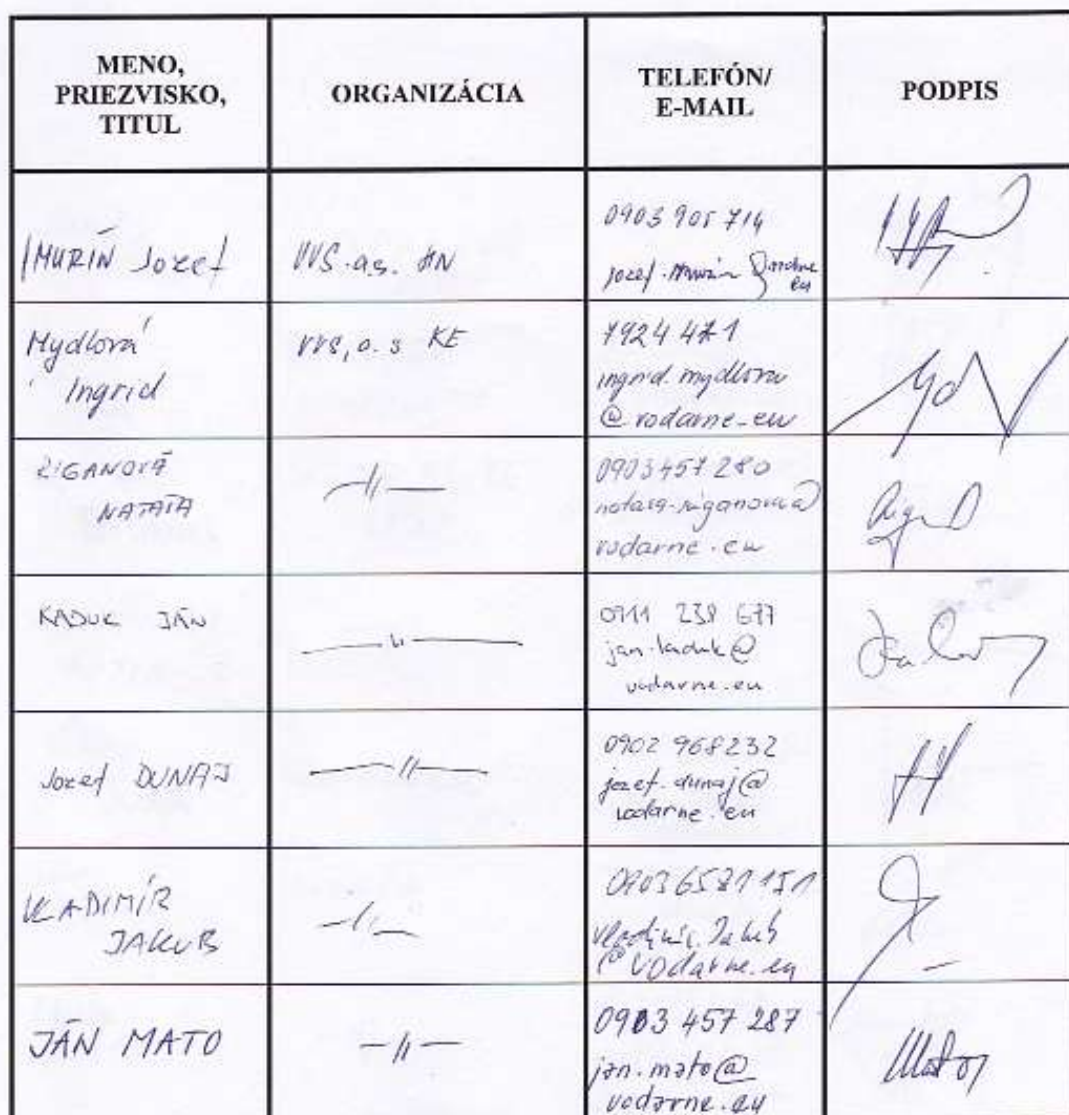 MENO,
PRIEZVISKO,
TITUL
ORGANIZÁCIA
TELEFÓN/
E-MAIL
PODPIS
MURÍN Jozef
VVS.a.s. HN
0903 905 714
jozef.murín@vodarne
eu
Mydlová
Ingrid
VVS, a.s KE
7924 471
ingrid.mydlova
@vodarne.eu
ŽIGANOVÁ
NATAŠA
-//-
0903457280
natasa.ziganova@
vodarne.eu
KADUK JÁN
-//-
0911 238 677
jan.kaduk@
vodarne.eu
Jozef DUNAJ
-//-
0902 968232
jozef.dunaj@
vodarne.eu
VLADIMÍR
JAKUB
-//-
vladimir.Jakub
@vodarne.eu
JÁN MATO
-//-
0903 457 287
jan.mato@
vodarne.eu
Mato